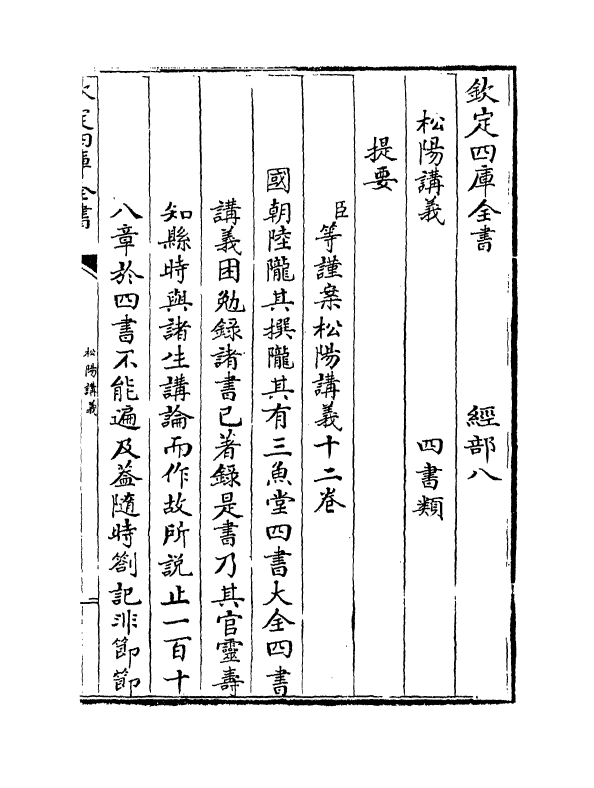 欽定四庫全書　經部八
松陽講義　四書類
提要
臣等謹案松陽講義十二卷
國朝陸隴其撰隴其有三魚堂四書大全四書
講義困勉録諸書已著録是書乃其官靈壽
知縣時與諸生講論而作故所説止一百十
八章於四書不能遍及葢隨時劄記非節節
欽定四庫全書
松陽講義
一